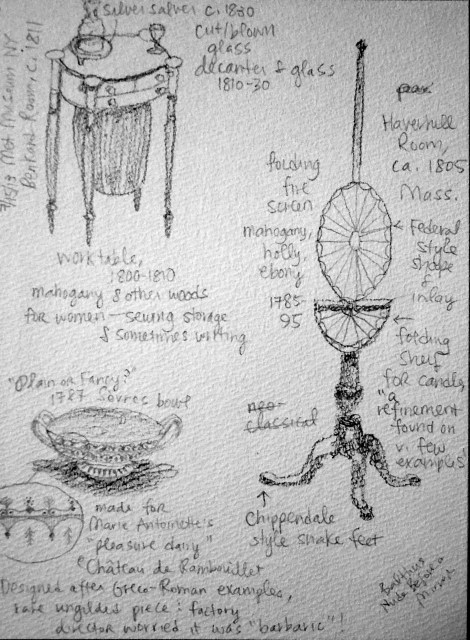 silver salver c. 1830
cut/blown
glass
decanter & glass
1810-30
7/15/13 Met Museum NY
Benkard Room, c. 1811
worktable,
1800-1810
mahogany & other woods
for women—sewing storage
& sometimes writing
Haverhill
Room,
ca. 1805
Mass.
folding
fire
screen
mahogany,
holly,
ebony
1785-
95
Federal
style
shape
&
inlay
folding
shelf
for candle,
"a
refinement
found on
v. few
examples"
neo-
classical
Chippendale
style snake feet
"Plain or Fancy?"
1787 Sevres bowl
made for
Marie Antoinette's
"pleasure dairy"
Château de Rambouillet
Designed after Greco-Roman examples,
rare ungilded piece: factory
director worried it was "barbaric"!
Balthus
Nude Before a
Mirror